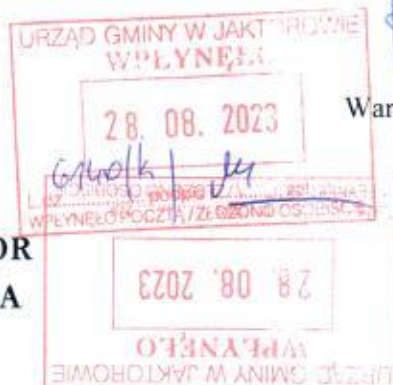 URZĄD GMINY W JAKTOROWIE
WPŁYNĘŁO
28. 08. 2023
War
WPŁYNĘŁO POCZTĄ / ZŁOŻONO OSOBIŚCIE
OR
A
28. 08. 2023
WPŁYNĘŁO
URZĄD GMINY W JAKTOROWIE